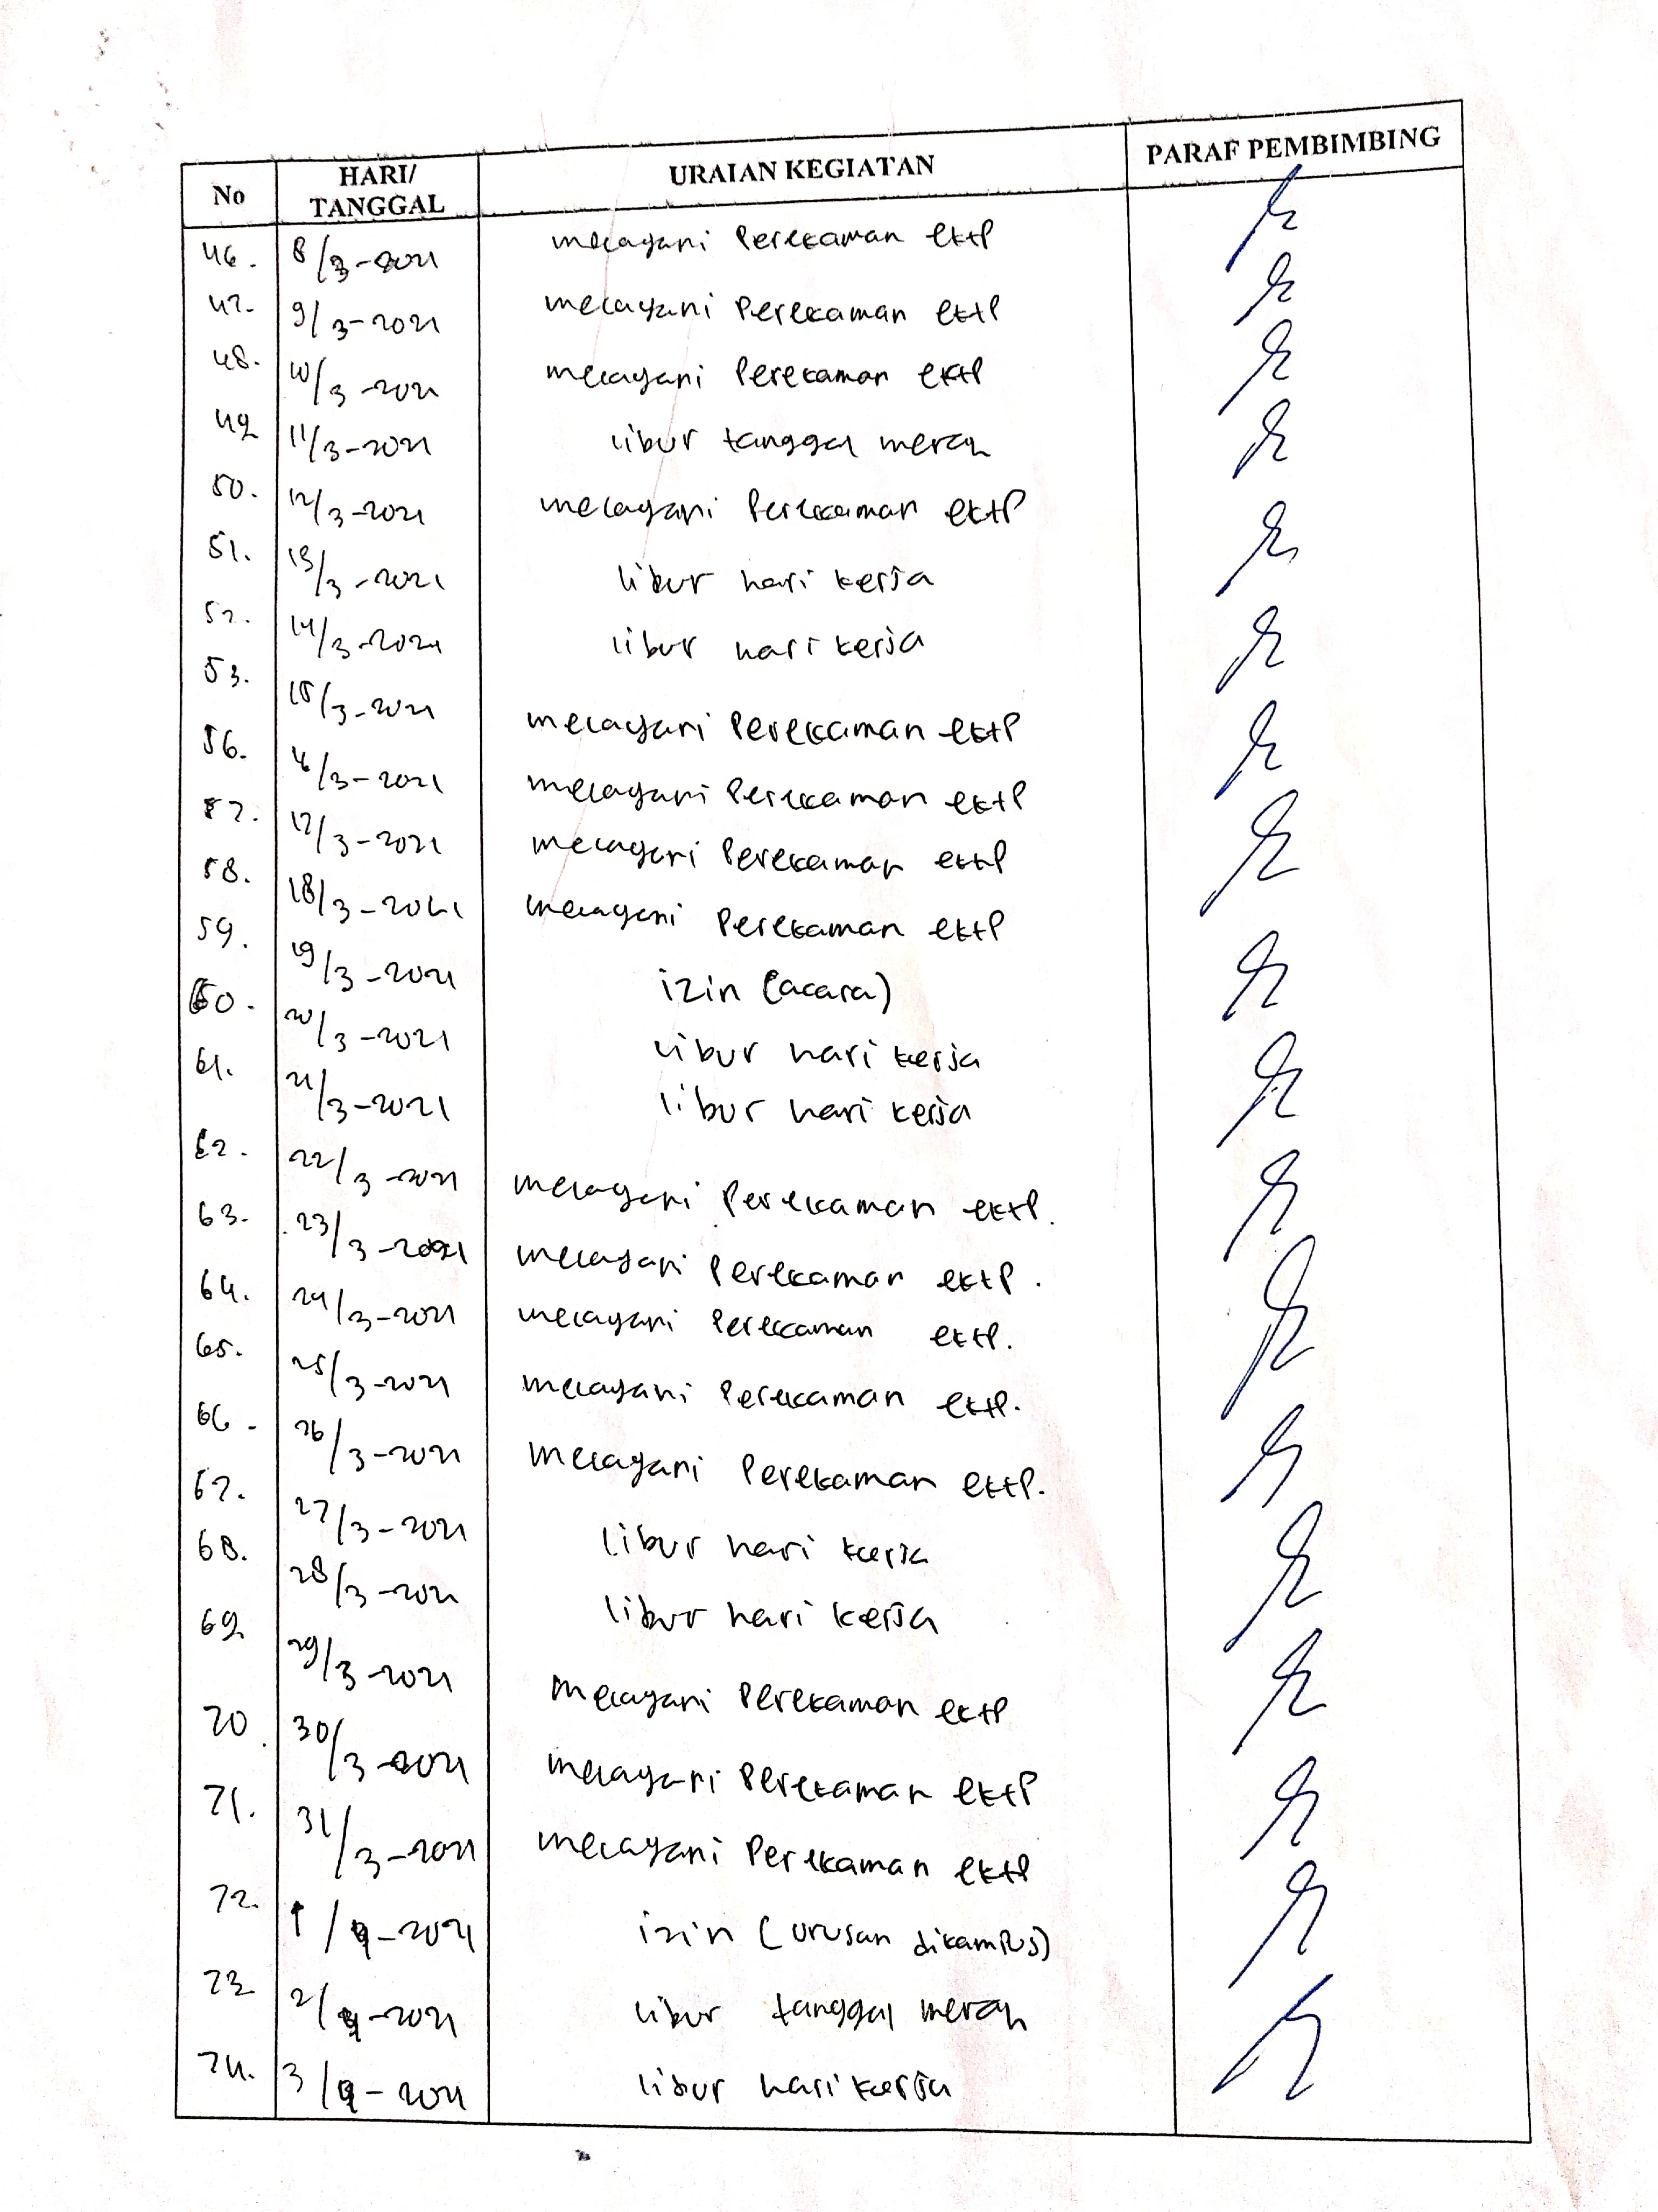 No HARI/ TANGGAL URAIAN KEGIATAN PARAF PEMBIMBING
46. 8/3-2021 melayani Perekaman ektp
47. 9/3-2021 melayani Perekaman ektp
48. 10/3-2021 melayani Perekaman ektp
49 11/3-2021 libur tanggal merah
50. 12/3-2021 melayani Perekaman ektp
51. 13/3-2021 libur hari kerja
52. 14/3-2021 libur hari kerja
53. 15/3-2021 melayani Perekaman ektp
56. 16/3-2021 melayani Perekaman ektp
57. 17/3-2021 melayani Perekaman ektp
58. 18/3-2021 melayani Perekaman ektp
59. 19/3-2021 izin (acara)
60. 20/3-2021 libur hari kerja
61. 21/3-2021 libur hari kerja
62. 22/3-2021 melayani Perekaman ektp.
63. 23/3-2021 melayani Perekaman ektp.
64. 24/3-2021 melayani Perekaman ektp.
65. 25/3-2021 melayani Perekaman ektp.
66- 26/3-2021 melayani Perekaman ektp.
67. 27/3-2021 libur hari kerja
68. 28/3-2021 libur hari kerja
69 29/3-2021 melayani Perekaman ektp
70. 30/3-2021 melayani Perekaman ektp
71. 31/3-2021 melayani Perekaman ektp
72. 1/4-2021 izin (urusan dikampus)
73 2/4-2021 libur tanggal merah
74. 3/4-2021 libur hari kerja